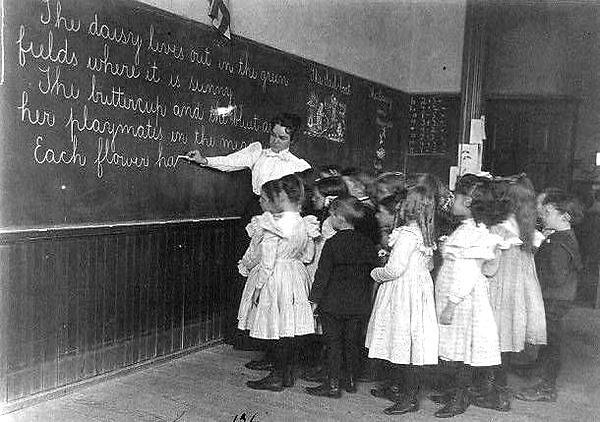 The daisy lives out in the green
fields where it is sunny.
The buttercup and the
her playmates in the
Each flower ha